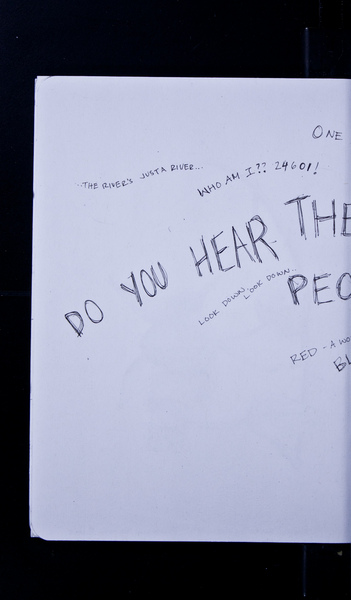 ONE
"THE RIVER'S JUST A RIVER...
WHO AM I?? 24601!
DO YOU HEAR THE
PEO
LOOK DOWN, LOOK DOWN..
RED - A WO
BL